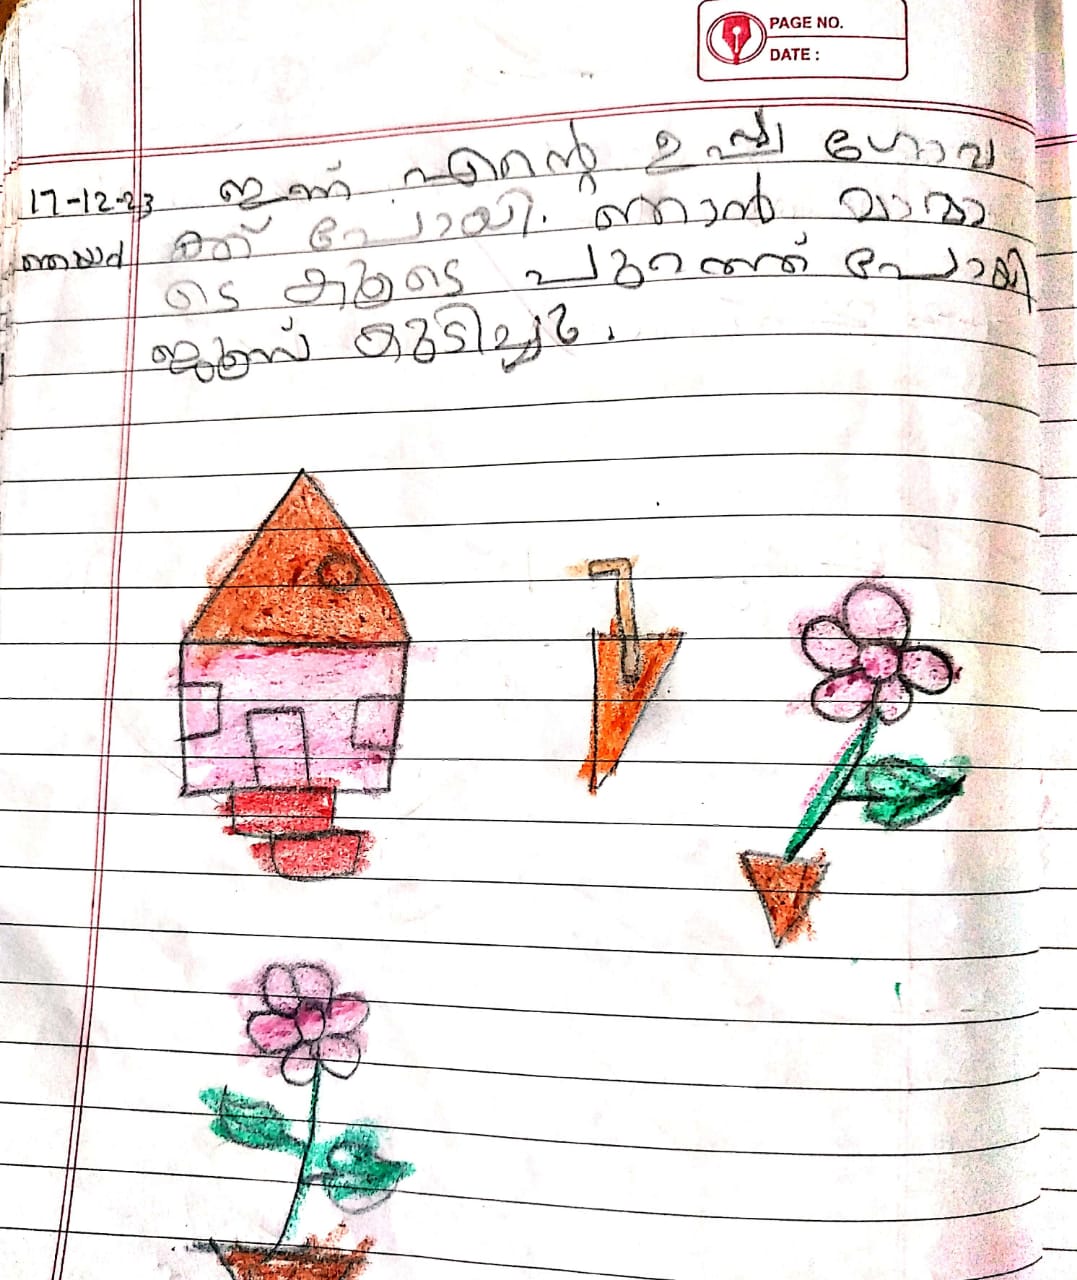 PAGE NO.
DATE :
17-12-23 ഇന്ന് എന്റെ ഉപ്പ ഗോവ
ഞയർ ക്ക് പോയി. ഞാൻ മാമാ
ടെ കൂടെ പുറത്ത് പോയി
ജൂസ് കുടിച്ചു.